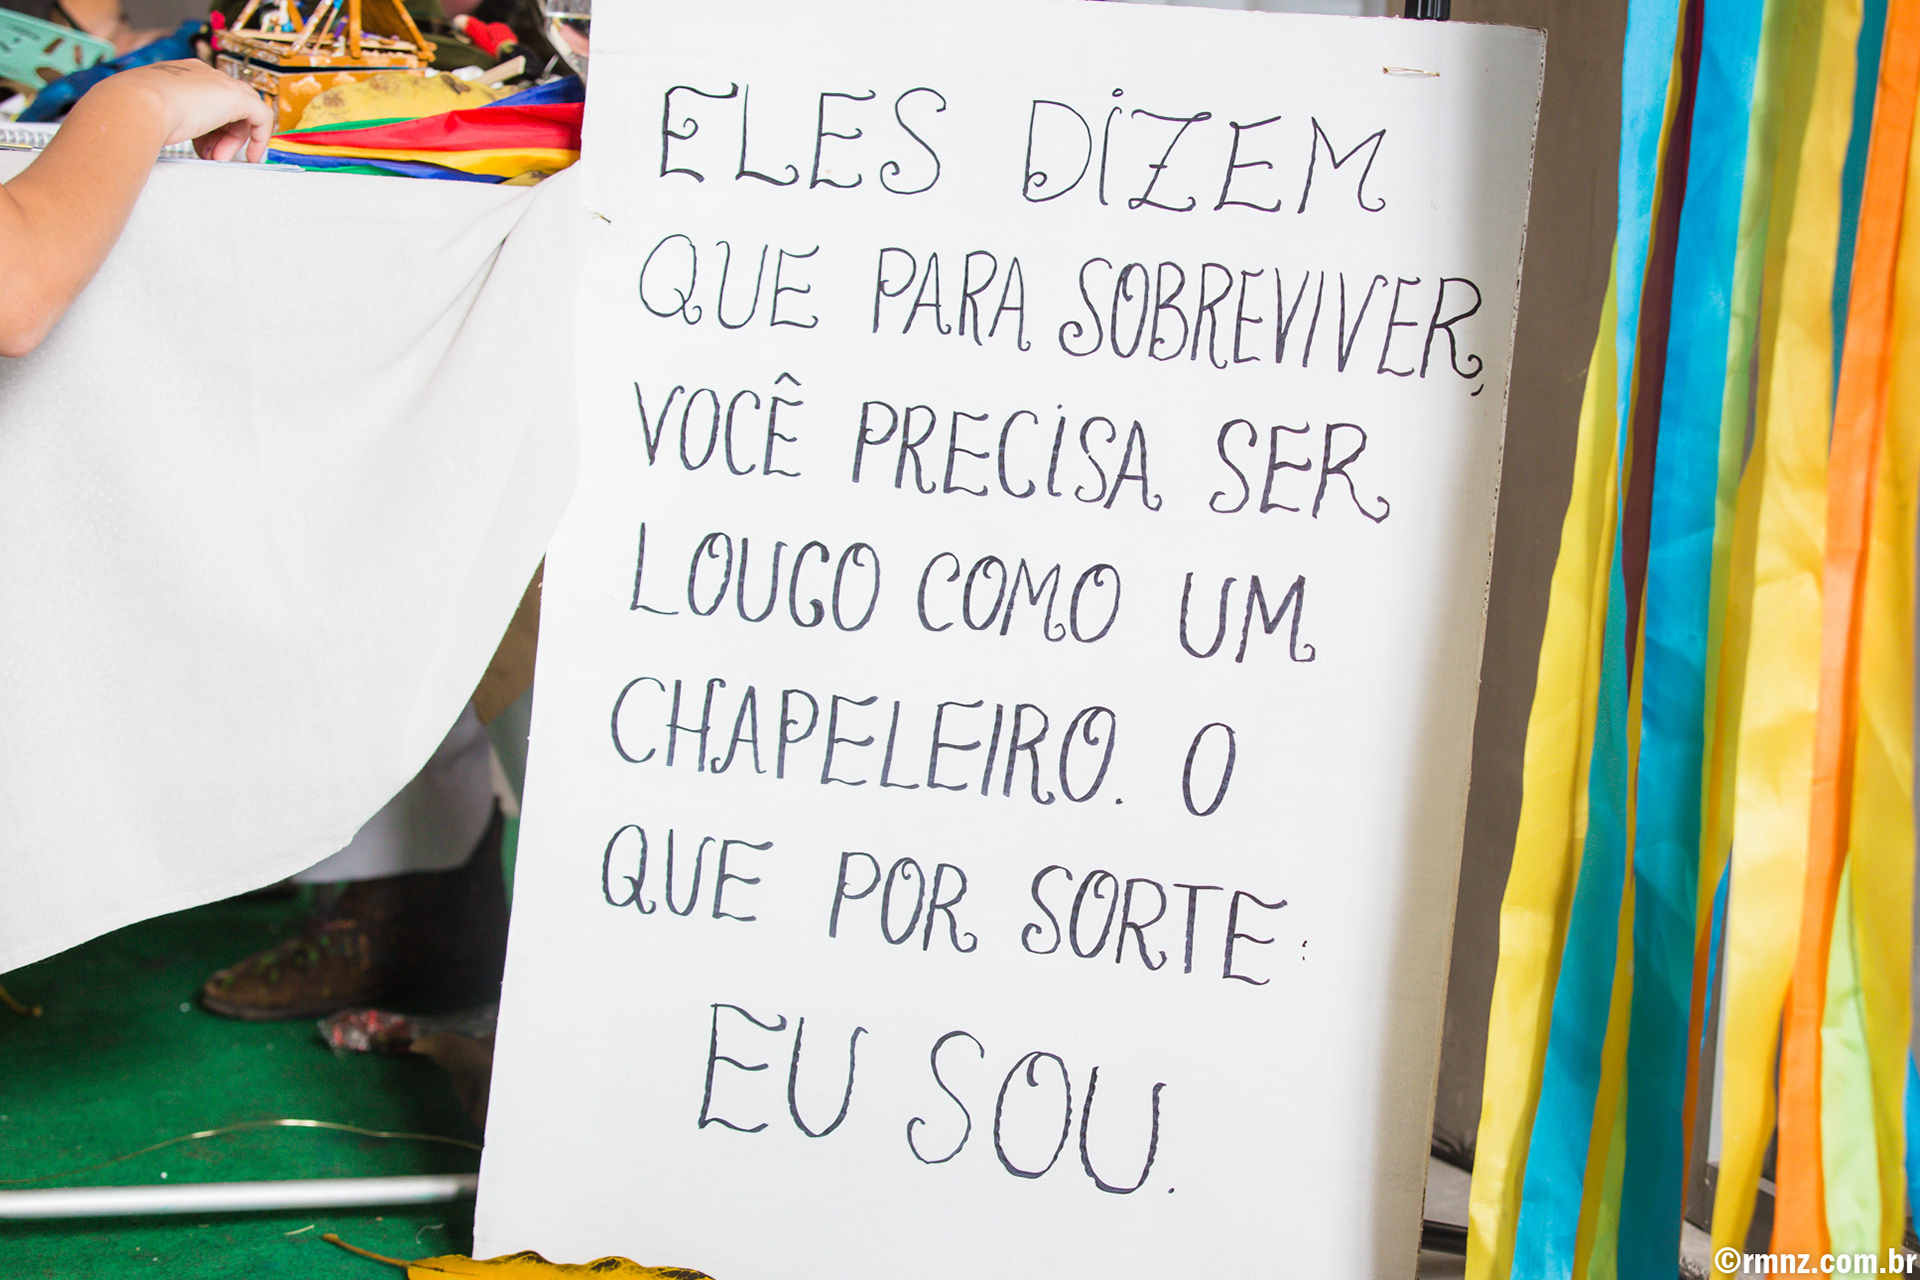 ELES DIZEM
QUE PARA SOBREVIVER,
VOCÊ PRECISA SER
LOUCO COMO UM
CHAPELEIRO. O
QUE POR SORTE:
EU SOU.
©rmnz.com.br